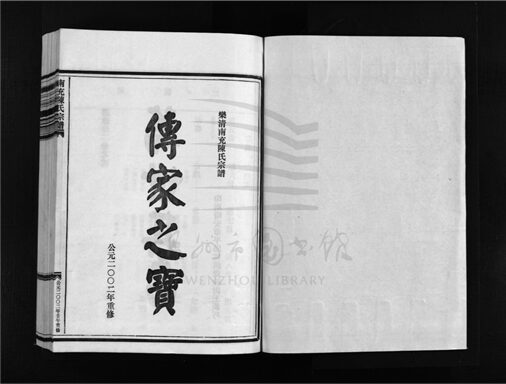 樂清南充陳氏宗譜
傳家之寶
公元二〇〇二年重修
南充陳氏宗譜
溫州市圖書館
WENZHOU LIBRARY